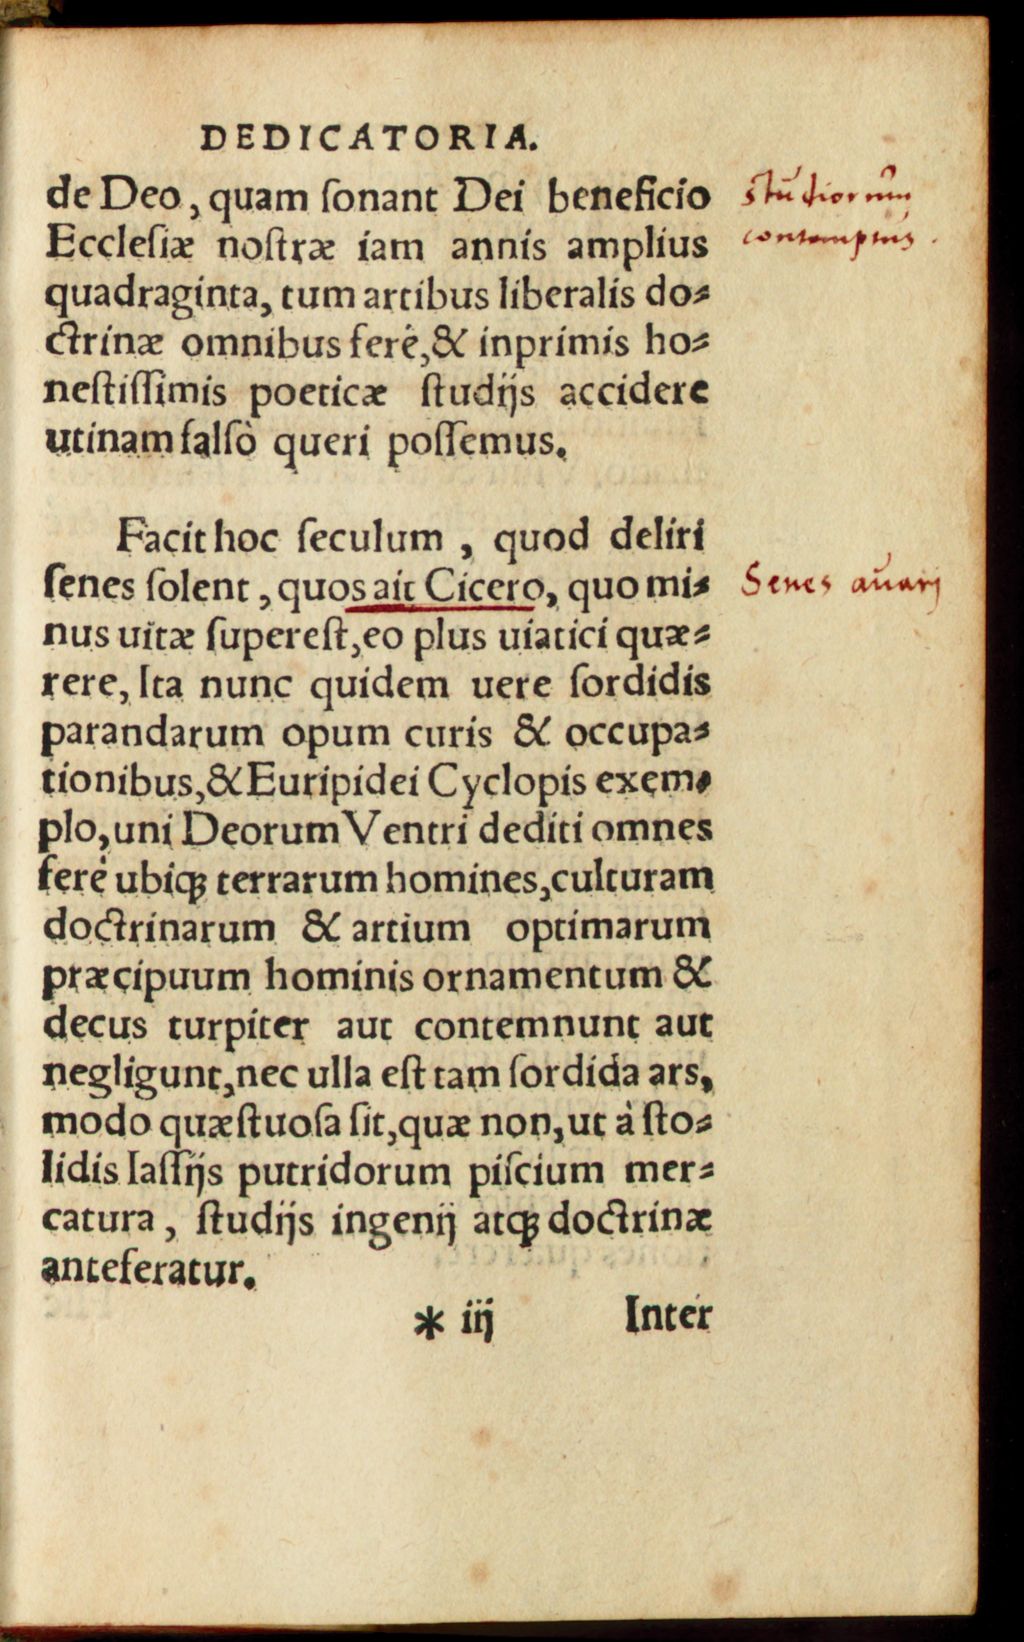 DEDICATORIA.
de Deo, quam ſonant Dei beneficio
Eccleſiæ noſtræ iam annis amplius
quadraginta, tum artibus liberalis do⸗
ctrinæ omnibus ferè, & inprimis ho⸗
neſtiſſimis poeticæ ſtudijs accidere
utinam falſò queri poſſemus.
Facit hoc ſeculum, quod deliri
ſenes ſolent, quos ait Cicero, quo mi⸗
nus uitæ ſupereſt, eo plus uiatici quæ⸗
rere, Ita nunc quidem uere ſordidis
parandarum opum curis & occupa⸗
tionibus, & Euripidei Cyclopis exem⸗
plo, uni Deorum Ventri dediti omnes
ferè ubiqꝫ terrarum homines, culturam
doctrinarum & artium optimarum
præcipuum hominis ornamentum &
decus turpiter aut contemnunt aut
negligunt, nec ulla eſt tam ſordida ars,
modo quæſtuoſa ſit, quæ non, ut à ſto⸗
lidis Iaſſijs putridorum piſcium mer⸗
catura, ſtudijs ingenij atqꝫ doctrinæ
anteferatur.
* iij Inter
Studiorum
contemptus.
Senes auarj